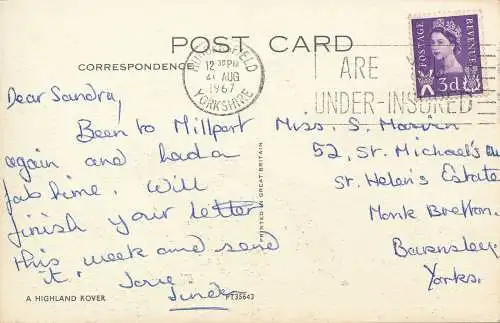 POST CARD
CORRESPONDENCE
HUDDERSFIELD
12 30PM
21 AUG
1967
YORKSHIRE
ARE
UNDER-INSURED
POSTAGE
REVENUE
3d
Dear Sandra,
Been to Millport
again and had a
fab time. Will
finish your letter
this week and send
it. Love
PRINTED IN GREAT BRITAIN
Miss. S. Marvin
52, St. Michael's
St. Helen's Estate
Monk Bretton.
Barnsley
Yorks.
A HIGHLAND ROVER
PT35643